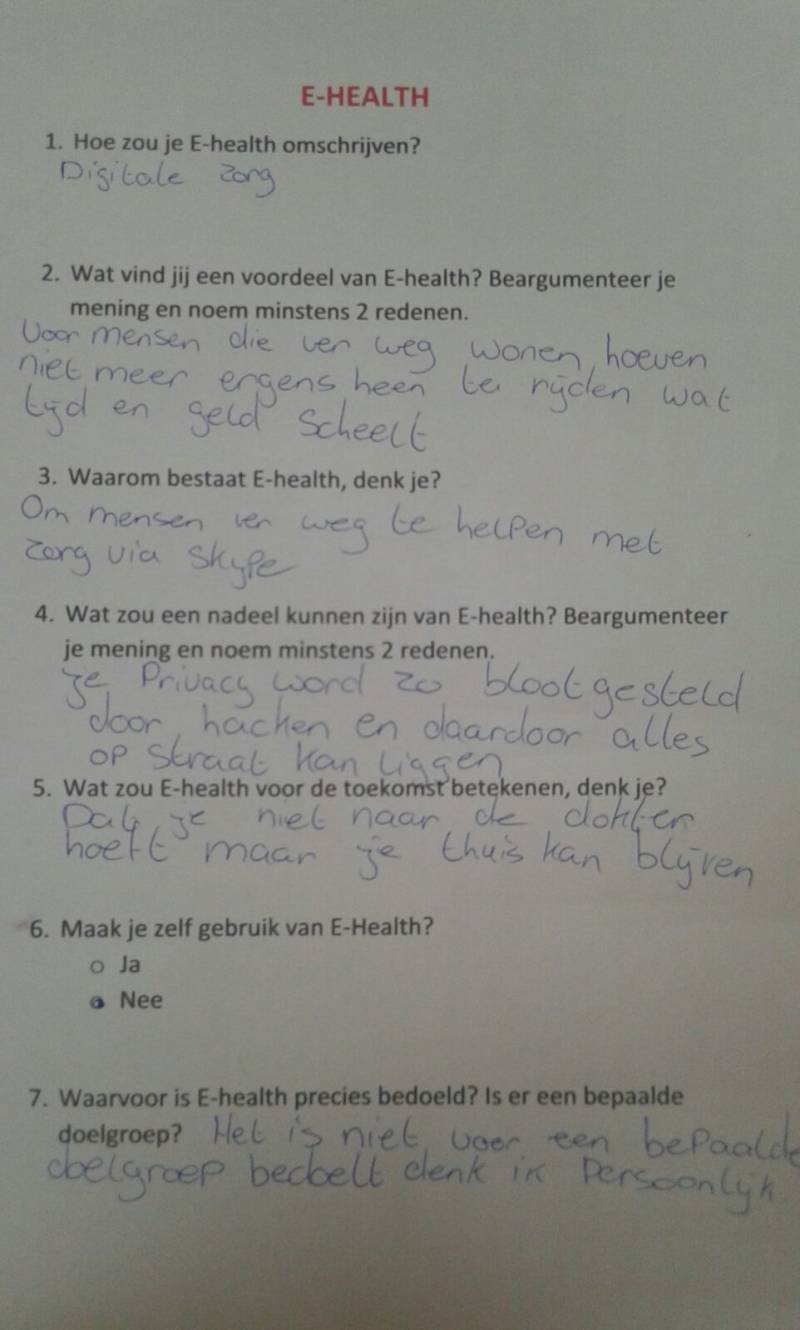 E-HEALTH
1. Hoe zou je E-health omschrijven?
Digitale zorg
2. Wat vind jij een voordeel van E-health? Beargumenteer je
mening en noem minstens 2 redenen.
Voor mensen die ver weg wonen, hoeven
niet meer ergens heen te rijden wat
tijd en geld scheelt
3. Waarom bestaat E-health, denk je?
Om mensen ver weg te helpen met
zorg via skype
4. Wat zou een nadeel kunnen zijn van E-health? Beargumenteer
je mening en noem minstens 2 redenen.
je Privacy word zo bloot gesteld
door hacken en daardoor alles
op straat kan liggen
5. Wat zou E-health voor de toekomst betekenen, denk je?
Dat je niet naar de dokter
hoeft maar je thuis kan blijven
6. Maak je zelf gebruik van E-Health?
Ja
Nee
7. Waarvoor is E-health precies bedoeld? Is er een bepaalde
doelgroep? Het is niet voor een bepaalde
doelgroep bedoelt denk ik Persoonlijk